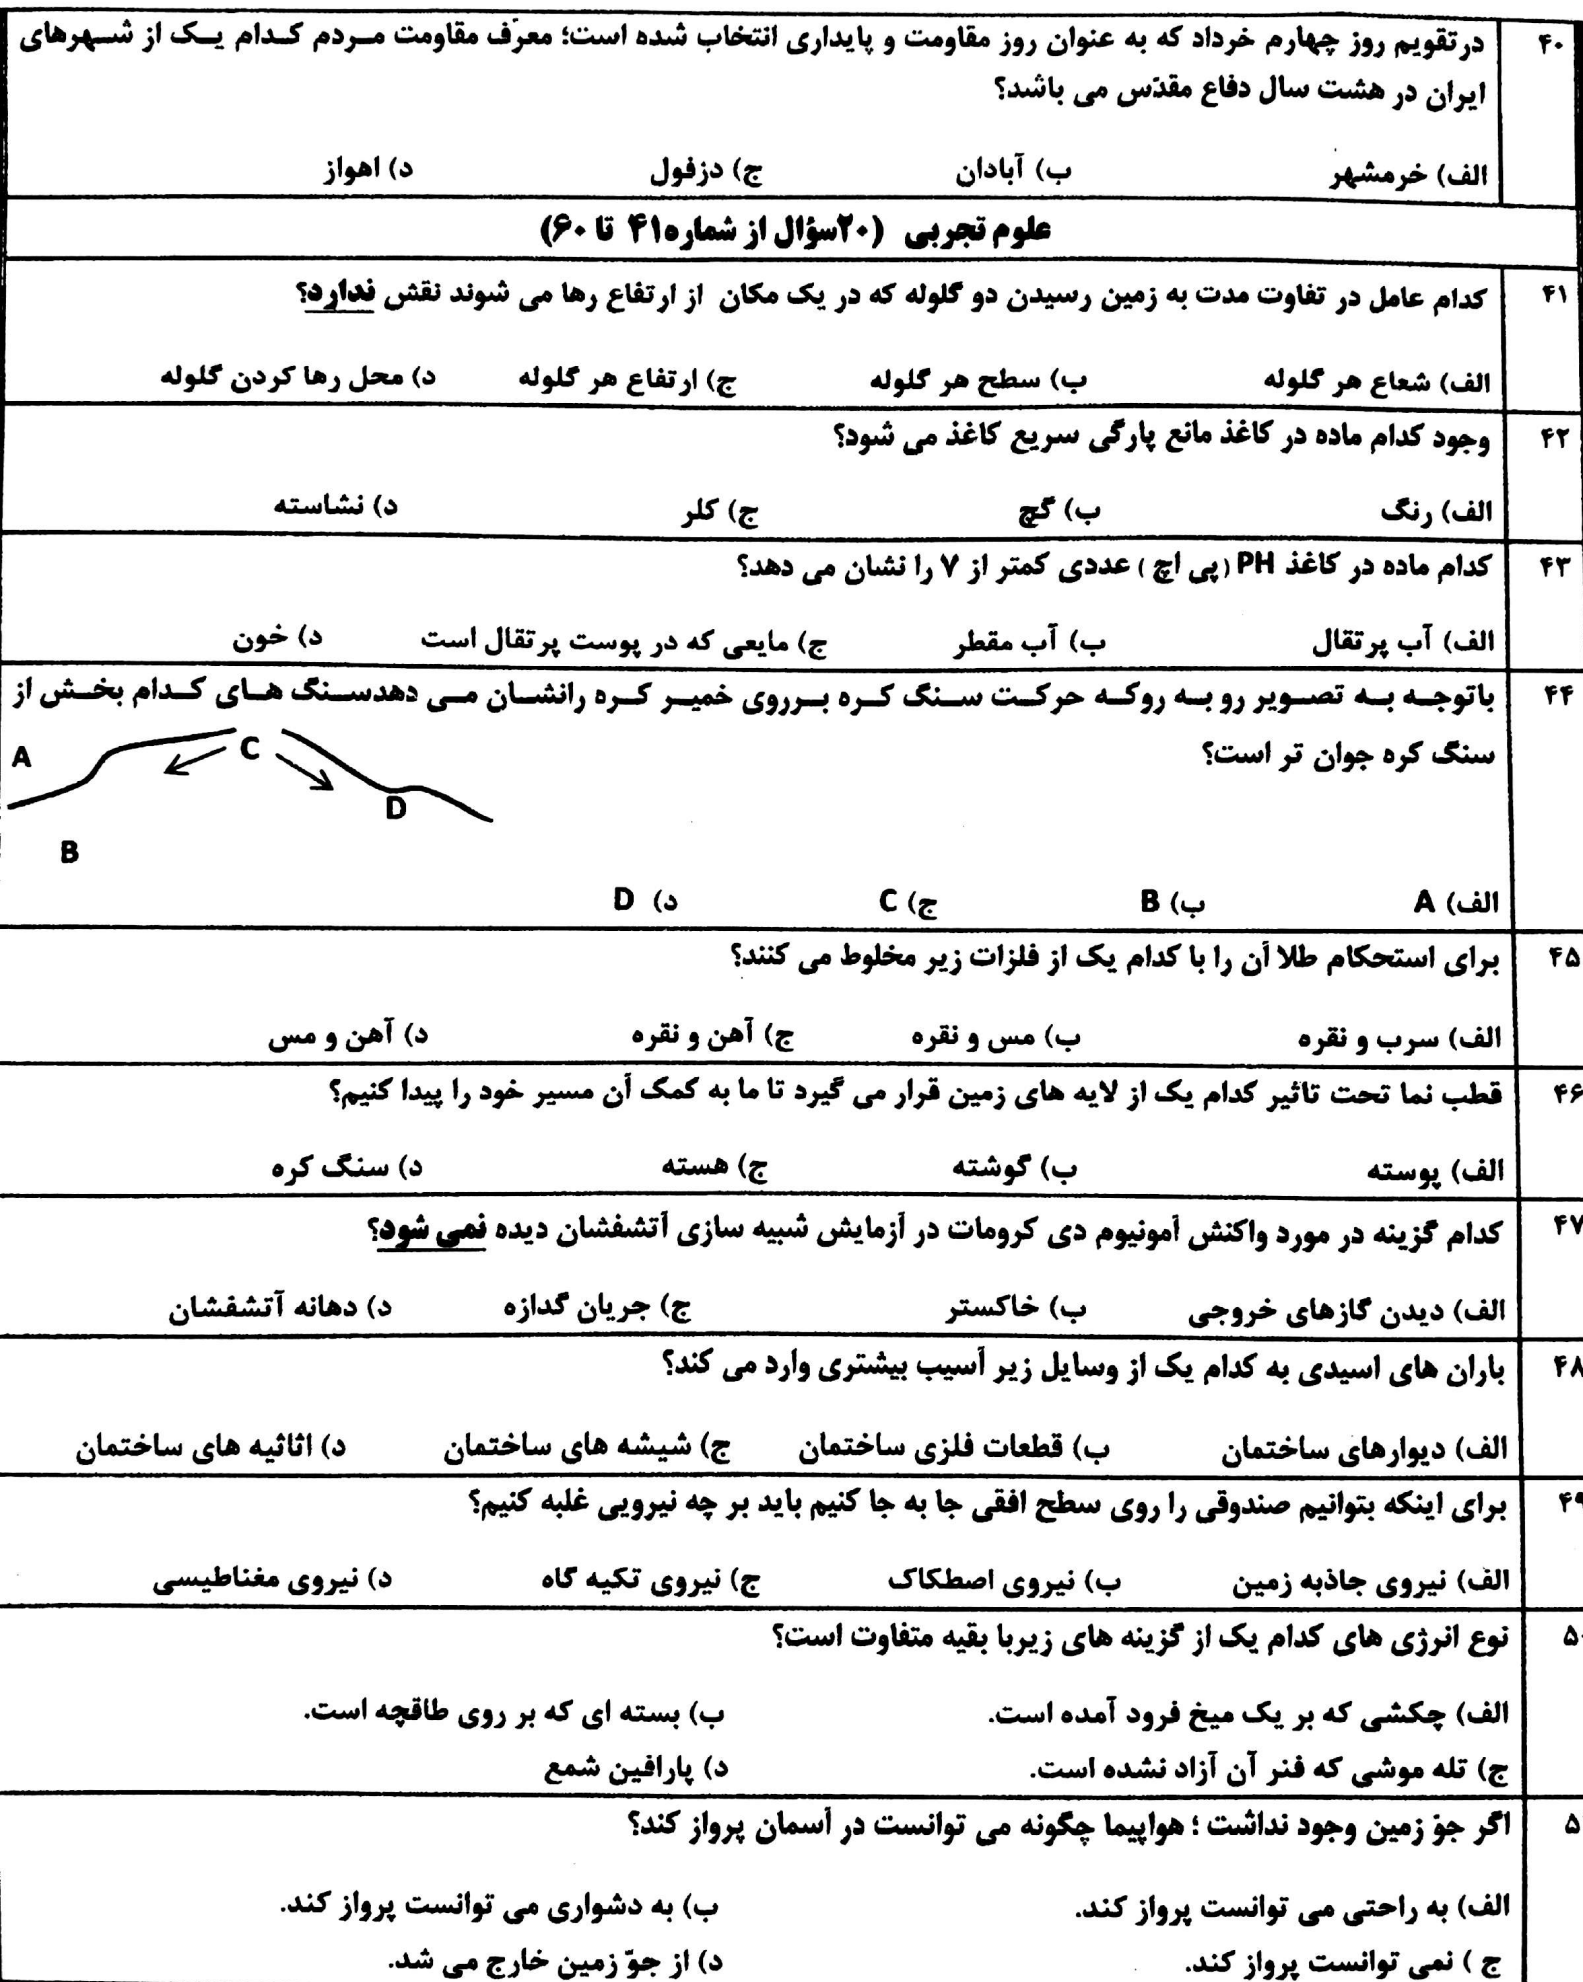 ۴۰ درتقویم روز چهارم خرداد که به عنوان روز مقاومت و پایداری انتخاب شده است؛ معرّف مقاومت مردم کدام یک از شهرهای
ایران در هشت سال دفاع مقدّس می باشد؟
الف) خرمشهر ب) آبادان ج) دزفول د) اهواز
علوم تجربی (۲۰سؤال از شماره۴۱ تا ۶۰)
۴۱ کدام عامل در تفاوت مدت به زمین رسیدن دو گلوله که در یک مکان از ارتفاع رها می شوند نقش ندارد؟
الف) شعاع هر گلوله ب) سطح هر گلوله ج) ارتفاع هر گلوله د) محل رها کردن گلوله
۴۲ وجود کدام ماده در کاغذ مانع پارگی سریع کاغذ می شود؟
الف) رنگ ب) گچ ج) کلر د) نشاسته
۴۳ کدام ماده در کاغذ PH (پی اچ) عددی کمتر از ۷ را نشان می دهد؟
الف) آب پرتقال ب) آب مقطر ج) مایعی که در پوست پرتقال است د) خون
۴۴ باتوجه به تصویر رو به روکه حرکت سنگ کره برروی خمیر کره رانشان می دهدسنگ های کدام بخش از
سنگ کره جوان تر است؟
A C
D
B
الف) A ب) B ج) C د) D
۴۵ برای استحکام طلا آن را با کدام یک از فلزات زیر مخلوط می کنند؟
الف) سرب و نقره ب) مس و نقره ج) آهن و نقره د) آهن و مس
۴۶ قطب نما تحت تاثیر کدام یک از لایه های زمین قرار می گیرد تا ما به کمک آن مسیر خود را پیدا کنیم؟
الف) پوسته ب) گوشته ج) هسته د) سنگ کره
۴۷ کدام گزینه در مورد واکنش آمونیوم دی کرومات در آزمایش شبیه سازی آتشفشان دیده نمی شود؟
الف) دیدن گازهای خروجی ب) خاکستر ج) جریان گدازه د) دهانه آتشفشان
۴۸ باران های اسیدی به کدام یک از وسایل زیر آسیب بیشتری وارد می کند؟
الف) دیوارهای ساختمان ب) قطعات فلزی ساختمان ج) شیشه های ساختمان د) اثاثیه های ساختمان
۴۹ برای اینکه بتوانیم صندوقی را روی سطح افقی جا به جا کنیم باید بر چه نیرویی غلبه کنیم؟
الف) نیروی جاذبه زمین ب) نیروی اصطکاک ج) نیروی تکیه گاه د) نیروی مغناطیسی
۵۰ نوع انرژی های کدام یک از گزینه های زیربا بقیه متفاوت است؟
الف) چکشی که بر یک میخ فرود آمده است. ب) بسته ای که بر روی طاقچه است.
ج) تله موشی که فنر آن آزاد نشده است. د) پارافین شمع
۵ اگر جوّ زمین وجود نداشت ؛ هواپیما چگونه می توانست در آسمان پرواز کند؟
الف) به راحتی می توانست پرواز کند. ب) به دشواری می توانست پرواز کند.
ج ) نمی توانست پرواز کند. د) از جوّ زمین خارج می شد.